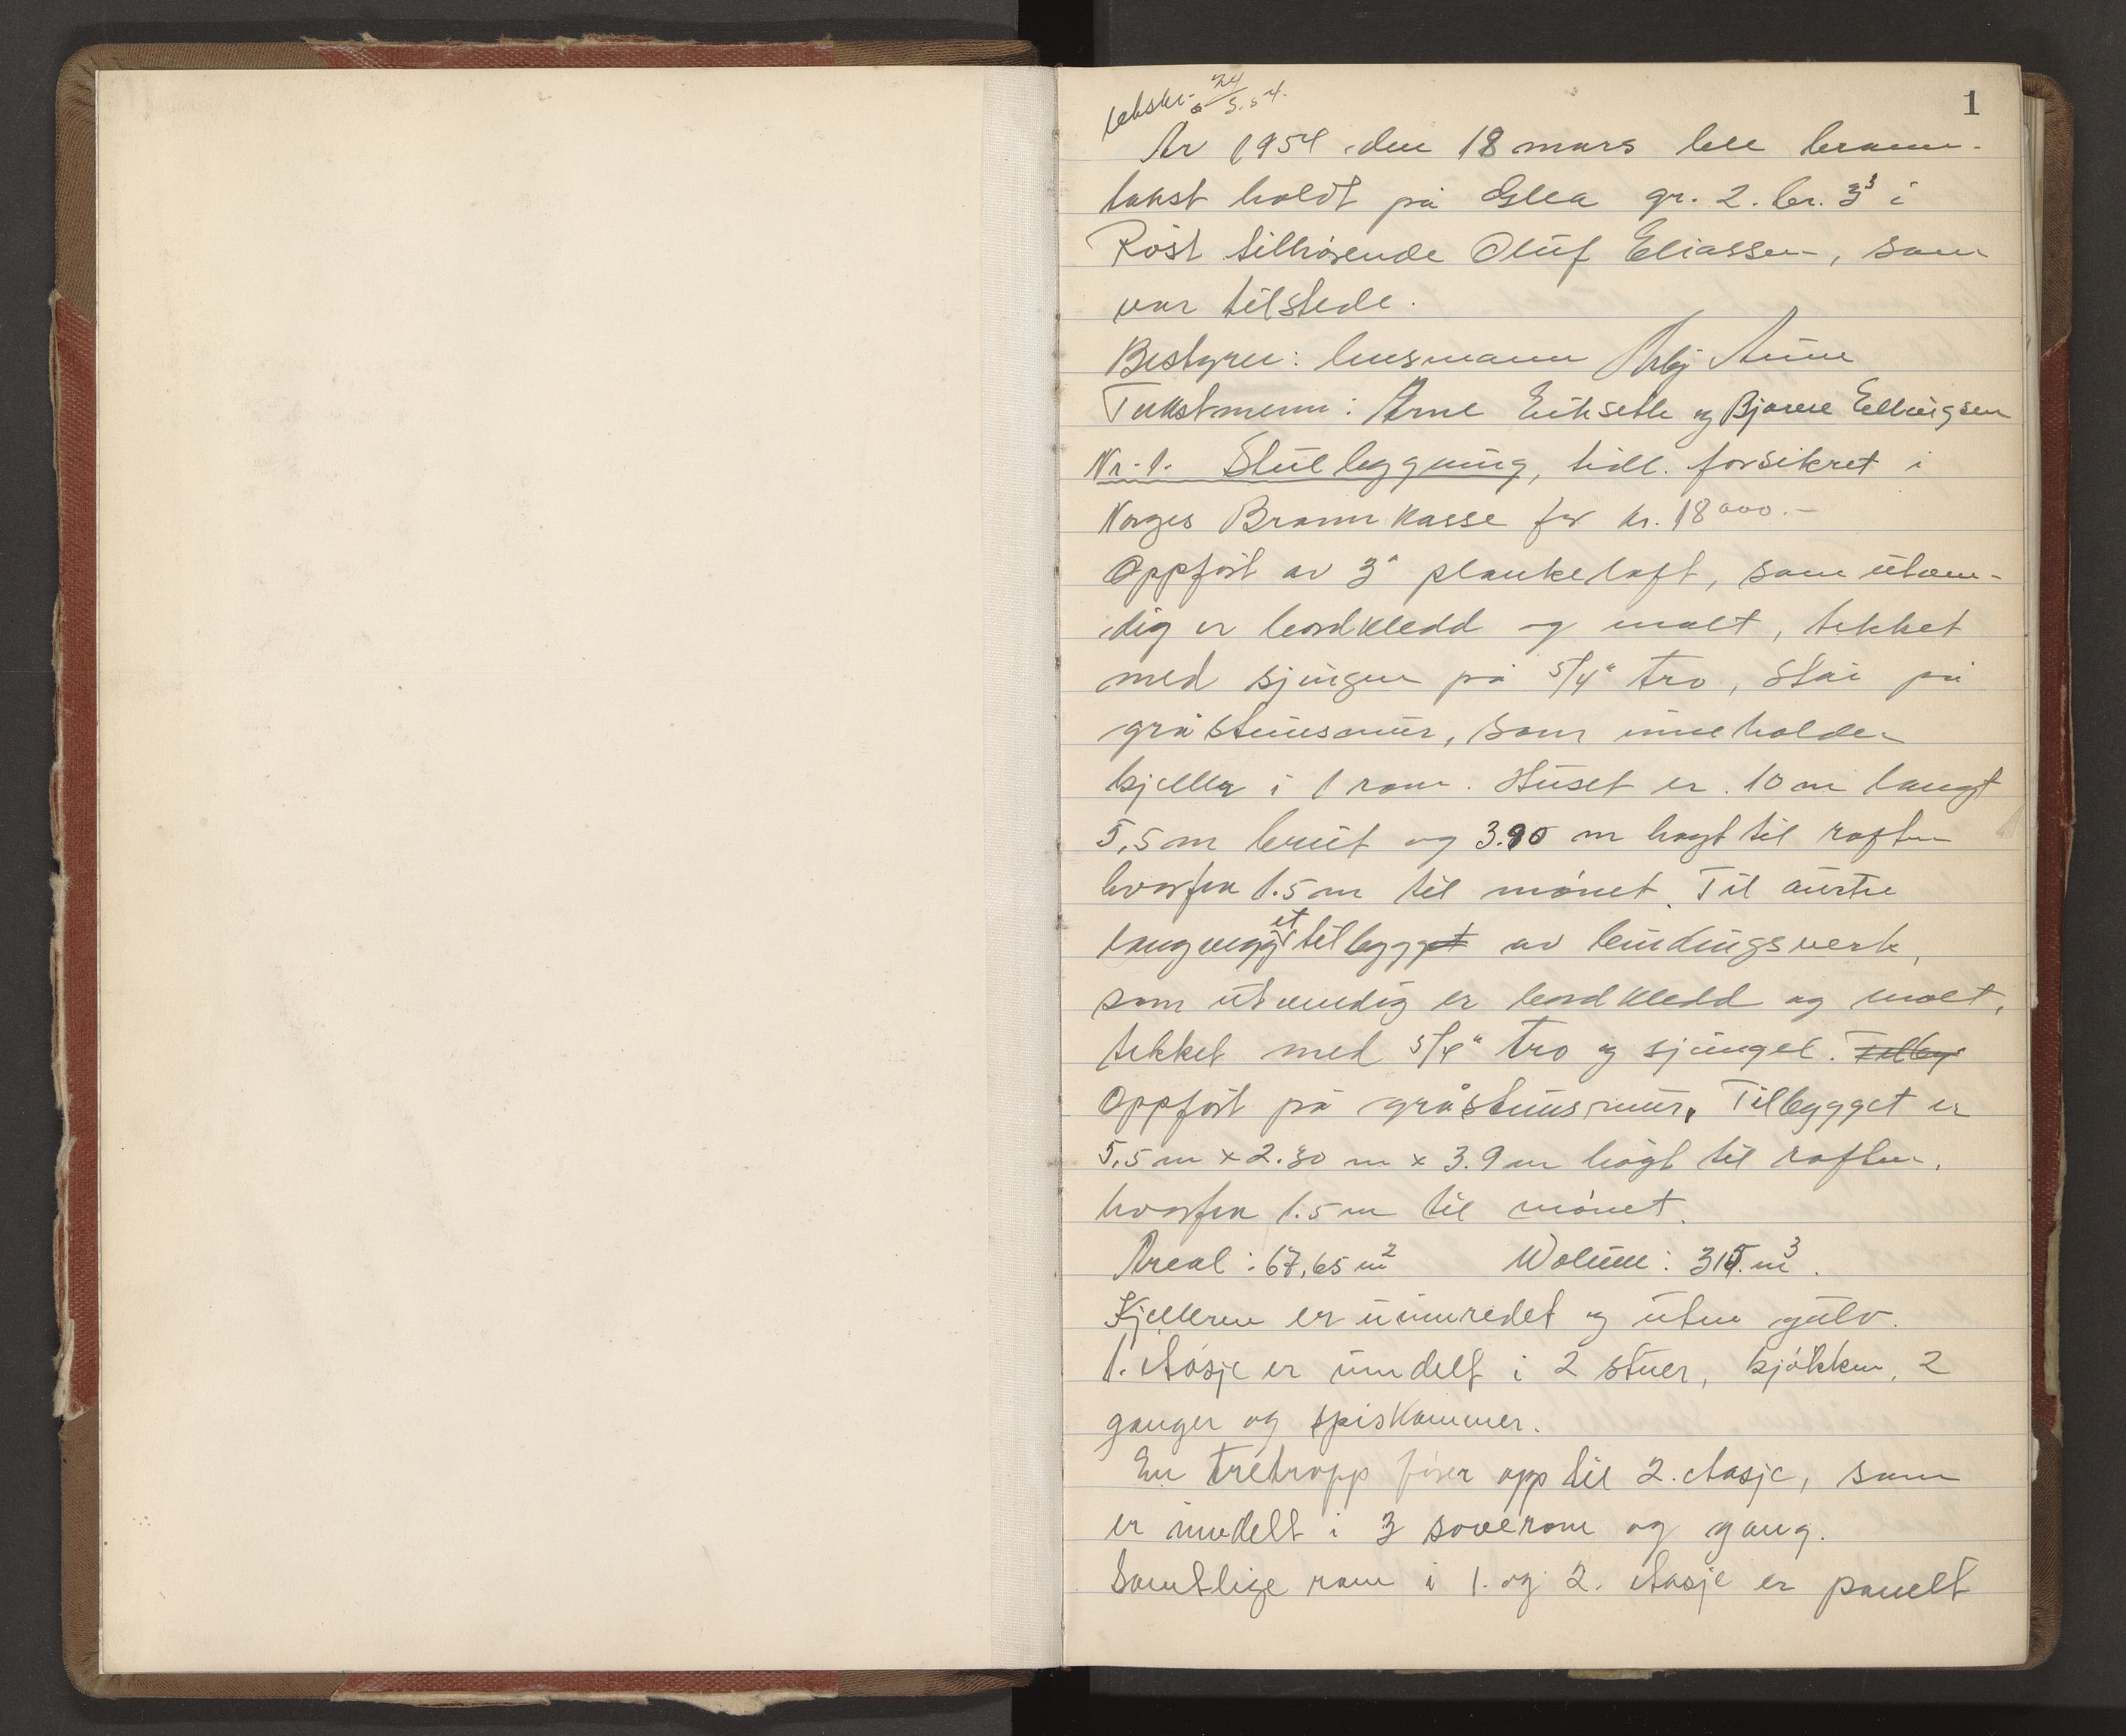 1
24/5.54.
År 1954 den 18 mars ble brann-
takst holdt på Glea gr. 2. br. 3³ i
Röst tilhörende Oluf Eliassen, som
var tilstede.
Bestyrer: lensmann Asbj Aune
Takstmenn: Arne Eriksen og Bjarne Ellingsen
Nr. 1. Stuebygning, tidl. forsikret i
Norges Brannkasse for kr. 18000.-
Oppfört av 3" plankelaft, som utven-
dig er bordkledd og malt, tekket
med sjingel på 5/4" tro, står på
gråsteinsmur, som inneholder
kjeller i 1 rom. Huset er 10 m langt
5,5 m breit og 3.90 m högt til raften
hvorfra 1.5 m til mönet. Til austre
langvegg et tilbygg av bindingsverk,
som utvendig er bordkledd og malt,
tekket med 5/4" tro og sjingel. Tilbyg
Oppfört på gråsteinsmur. Tilbygget er
5,5 m x 2.30 m x 3.9 m högt til raften.
hvorfra 1.5 m til mönet.
Areal: 67,65 m² Volum: 315 m³.
Kjelleren er uinnredet og uten gulv.
1. etasje er inndelt i 2 stuer, kjökken, 2
ganger og spiskammer.
En tretrapp förer opp til 2. etasje, som
er inndelt i 3 soverom og gang.
Samtlige rom i 1. og 2. etasje er panelt